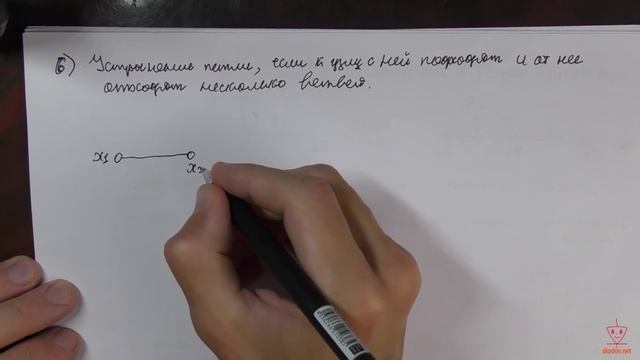 б) Устранение петли, если к узлу с ней подходят и от нее
отходят несколько ветвей.
x₁
x₃
diodov.net